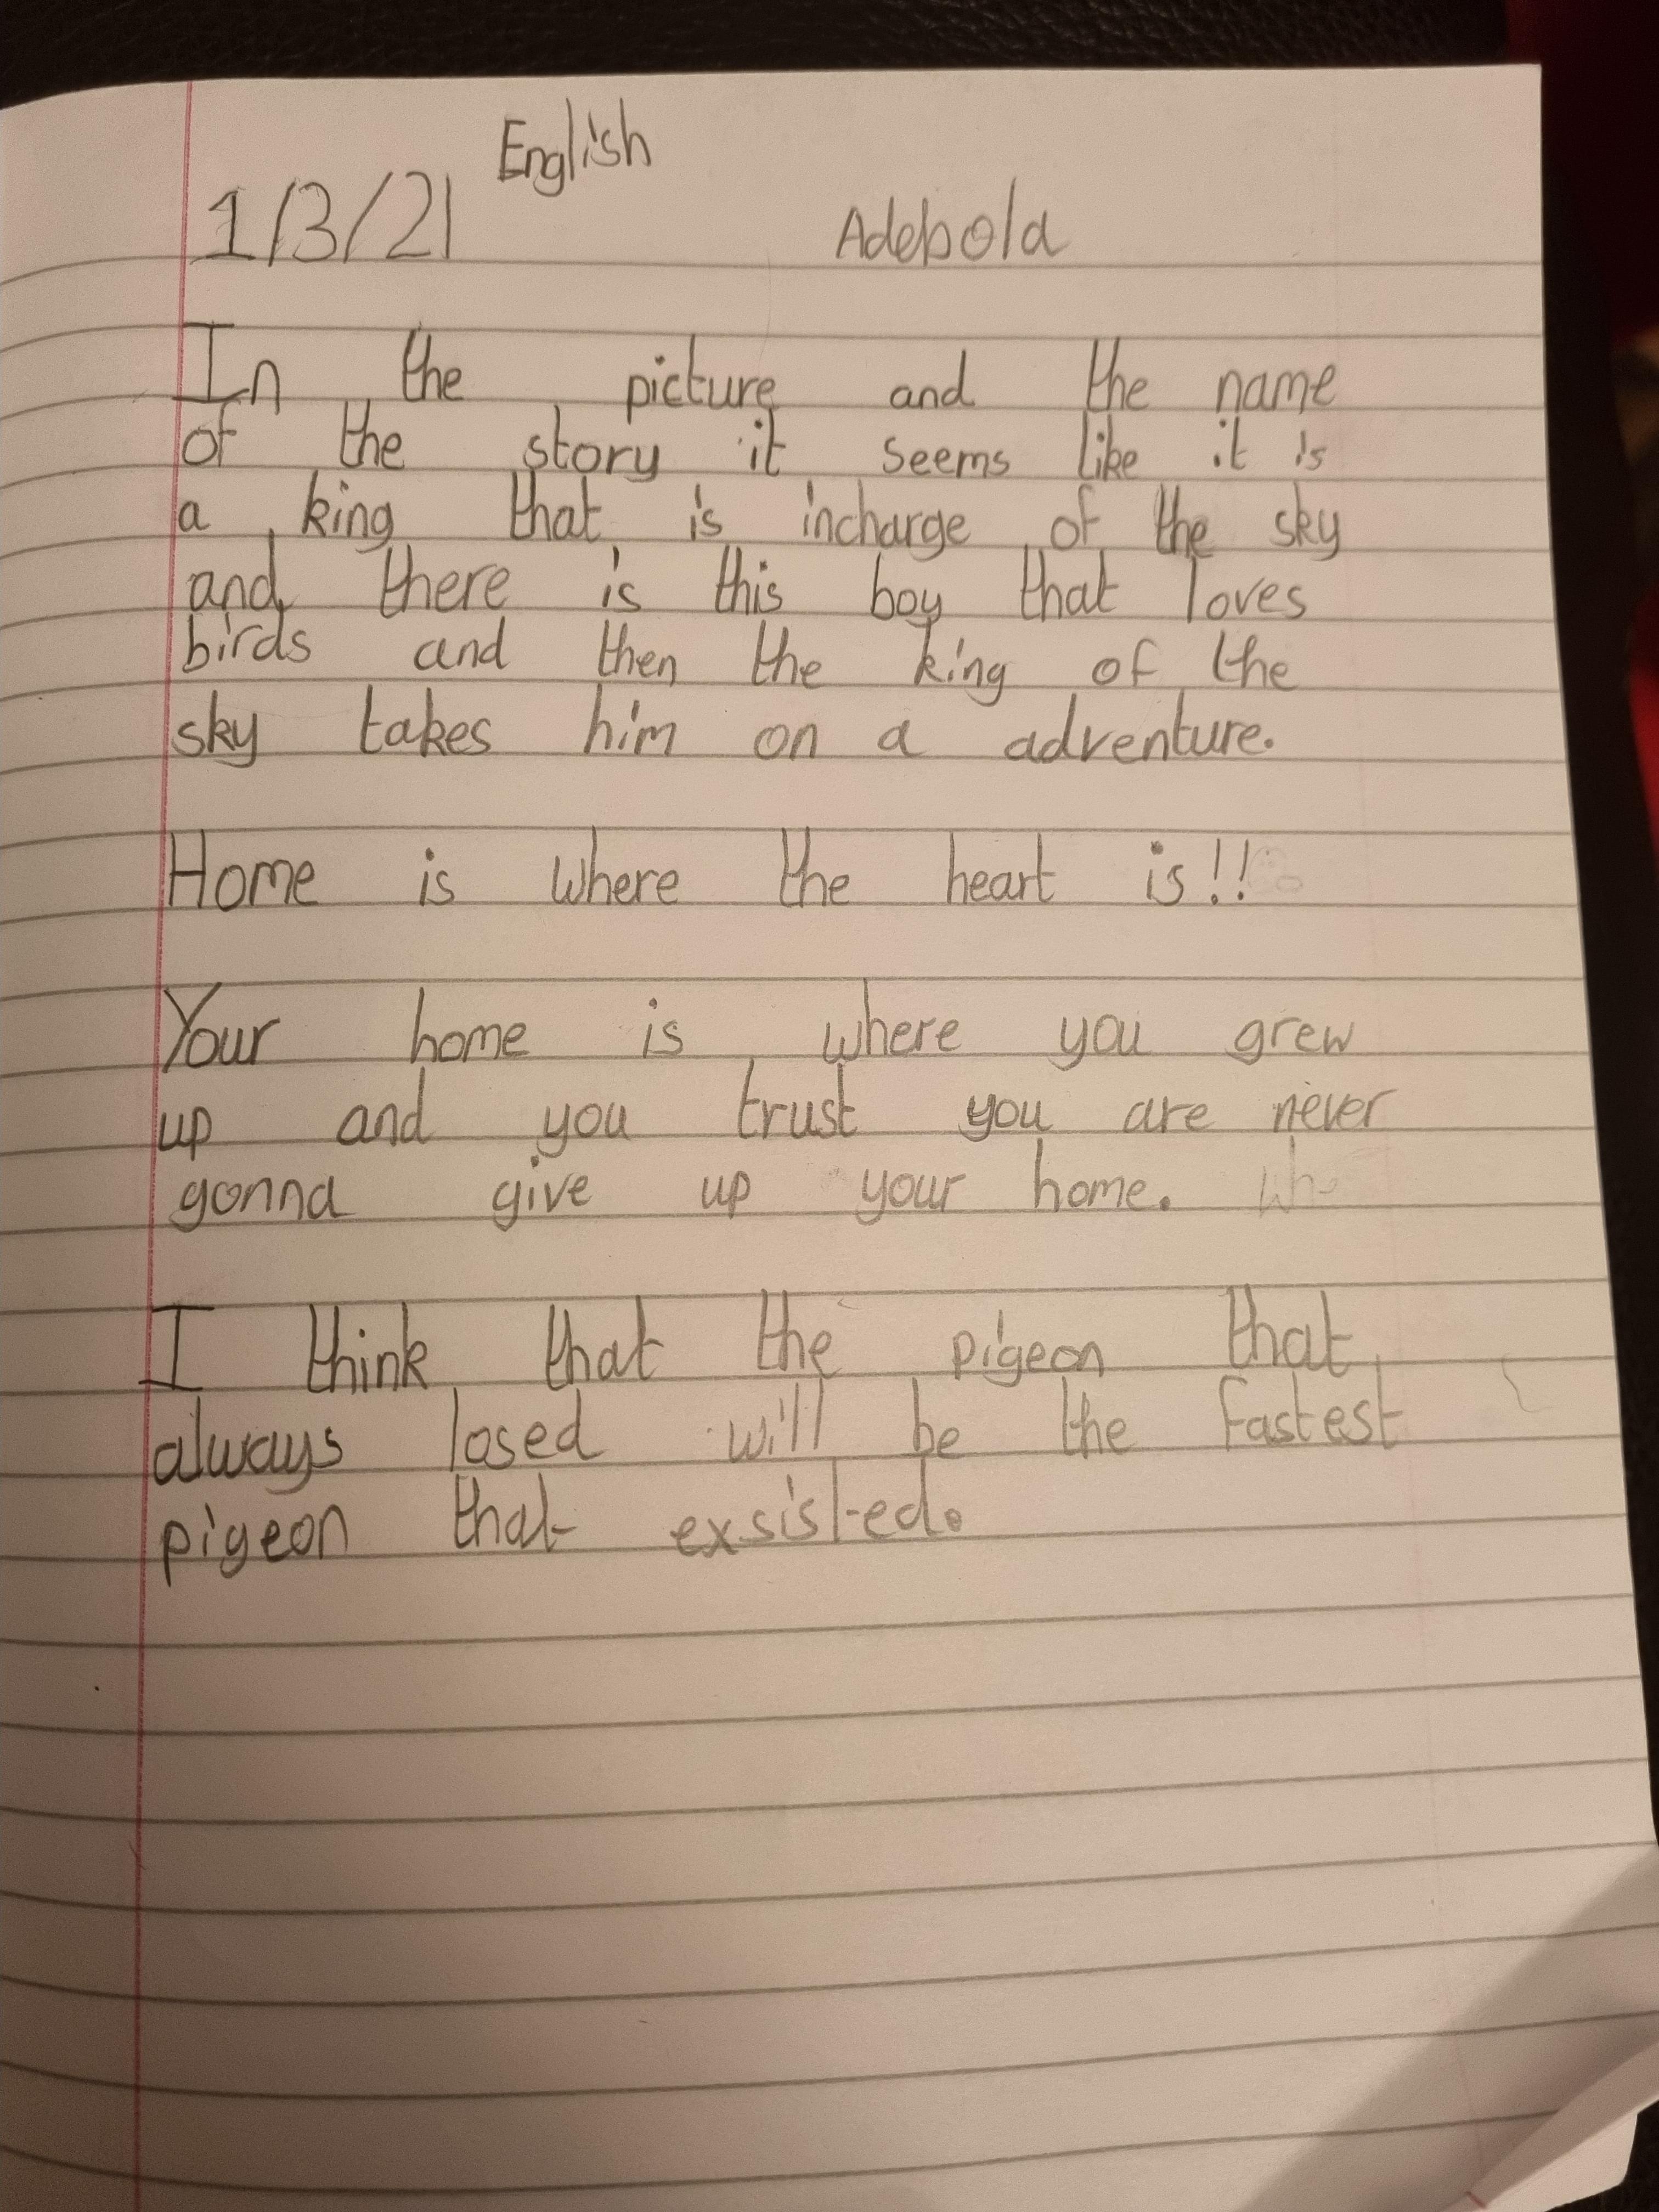 English
1/3/21 Adebola
In the picture and the name
of the story it seems like it is
a king that is incharge of the sky
and there is this boy that loves
birds and then the king of the
sky takes him on a adventure.
Home is where the heart is!!
Your home is where you grew
up and you trust you are never
gonna give up your home. Wh
I think that the pigeon that
always losed will be the fastest
pigeon that exsisted.